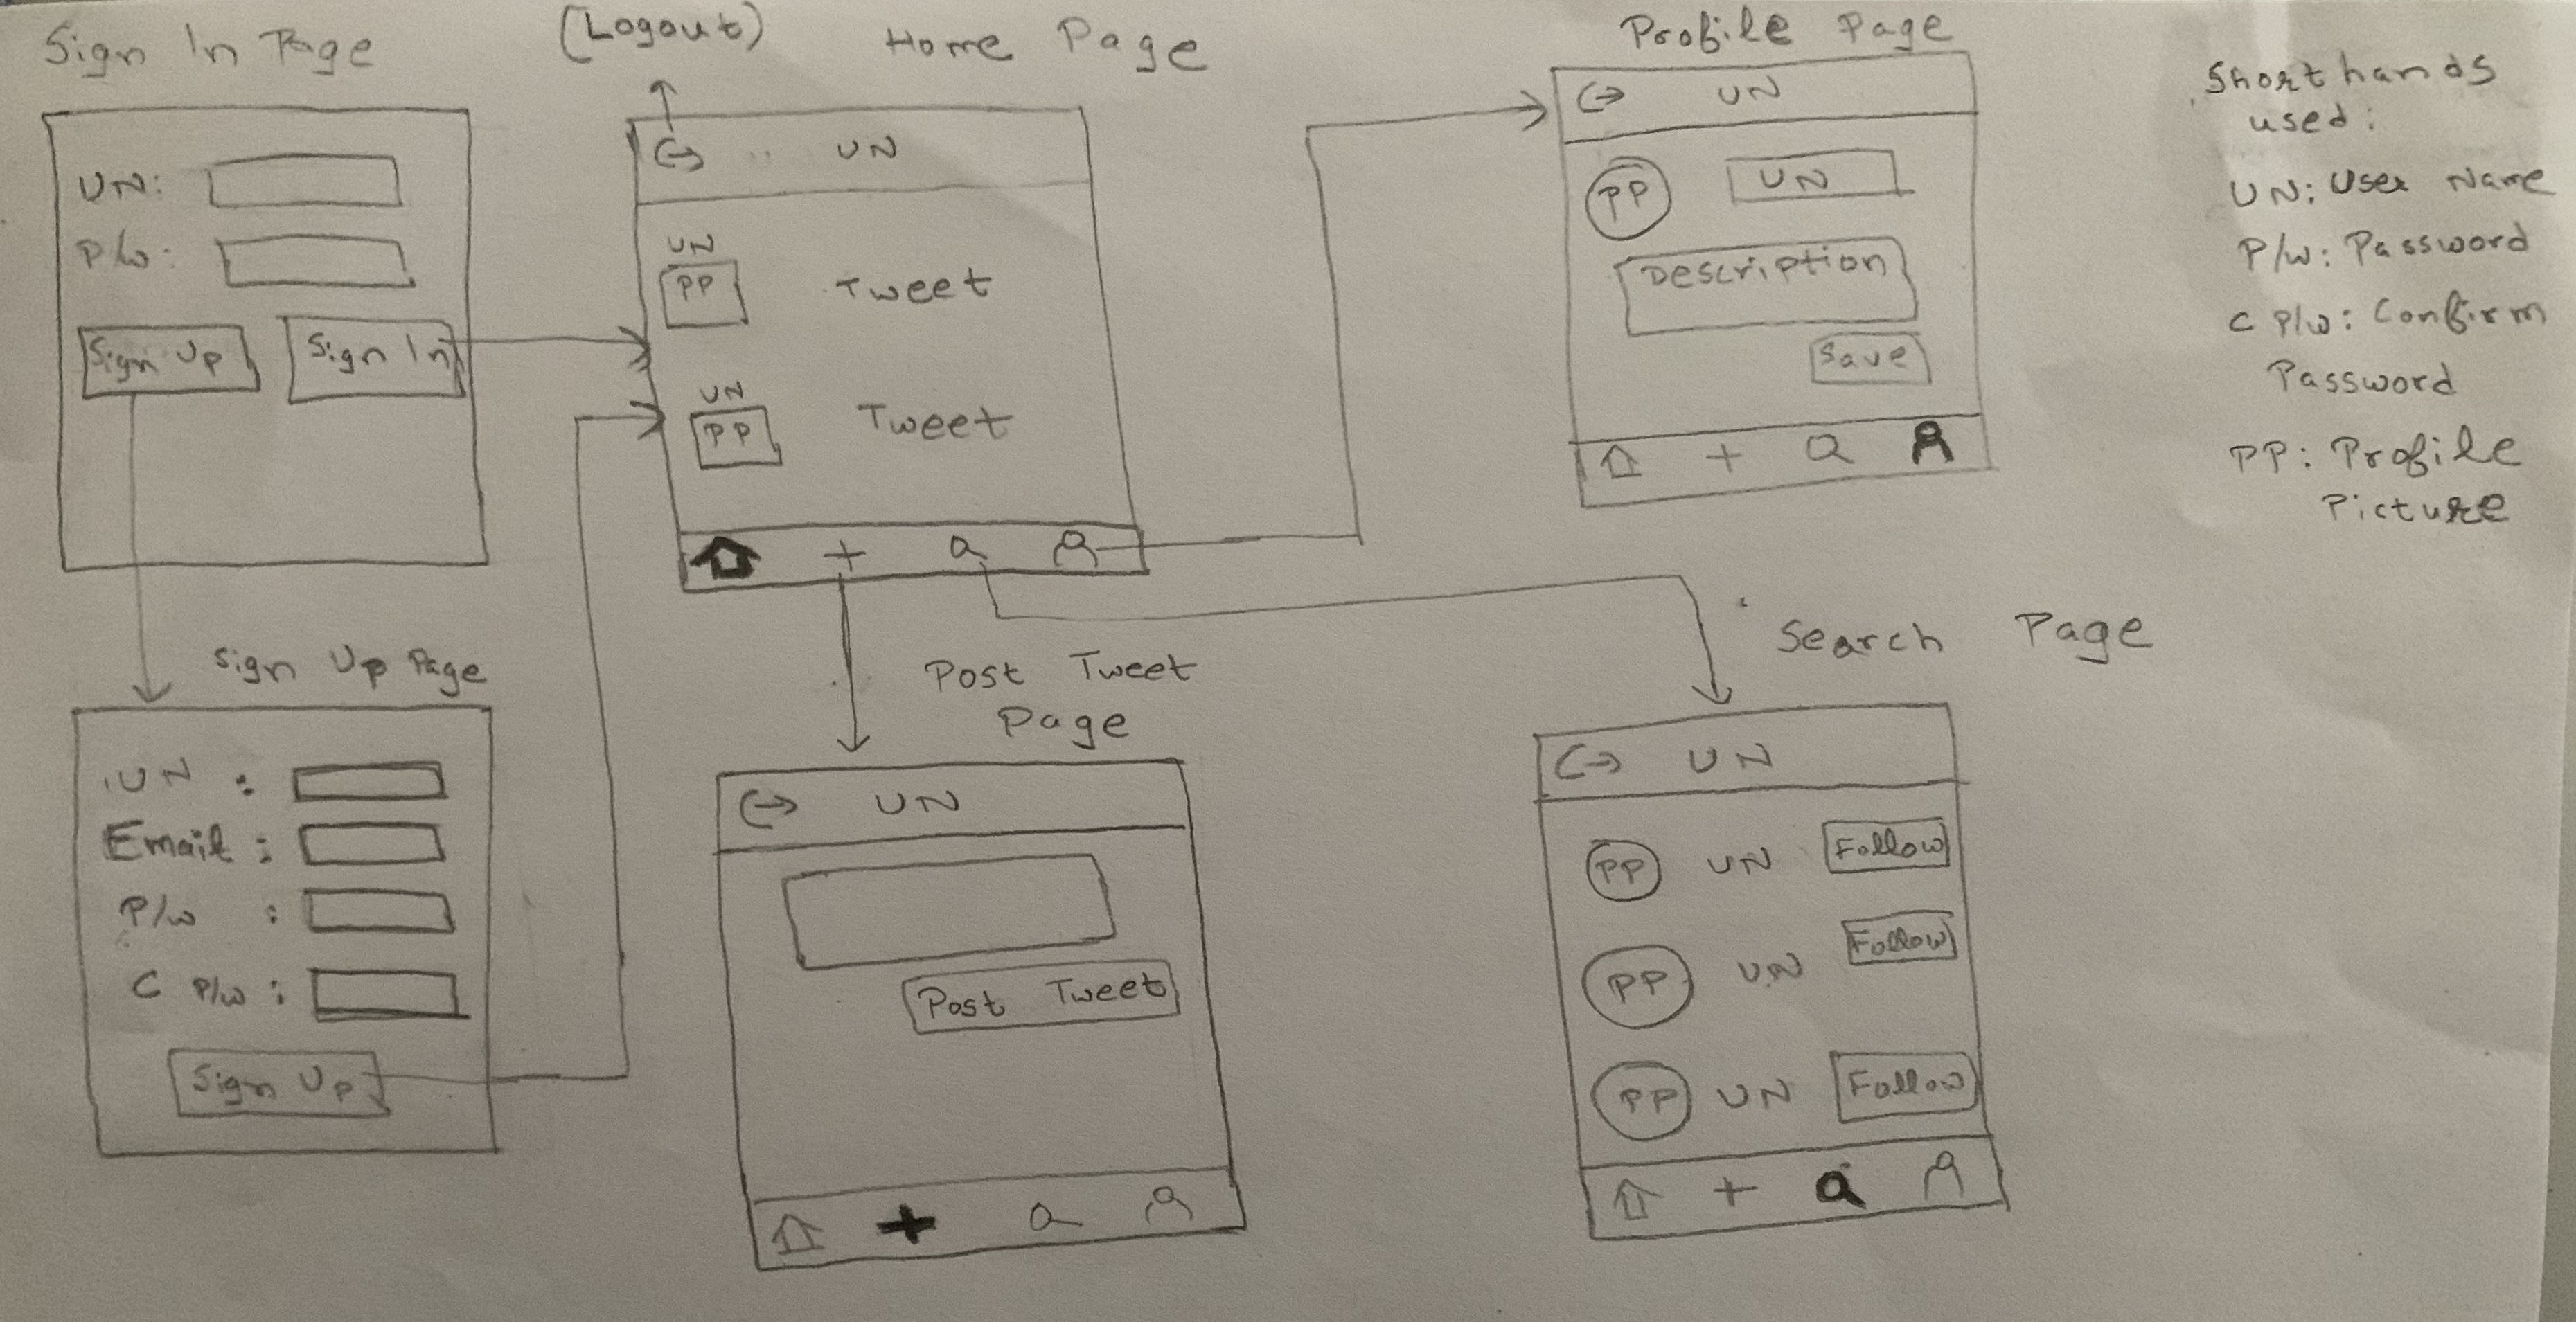 Sign In Page
UN:
P/w:
Sign Up
Sign In
(Logout)
Home Page
UN
UN
PP
Tweet
UN
PP
Tweet
Profile Page
UN
PP
UN
Description
Save
Shorthands
used:
UN: User Name
P/w: Password
C P/w: Confirm
Password
PP: Profile
Picture
Sign Up Page
UN :
Email :
P/w :
C P/w :
Sign Up
Post Tweet
Page
UN
Post Tweet
Search Page
UN
PP UN Follow
PP UN Follow
PP UN Follow